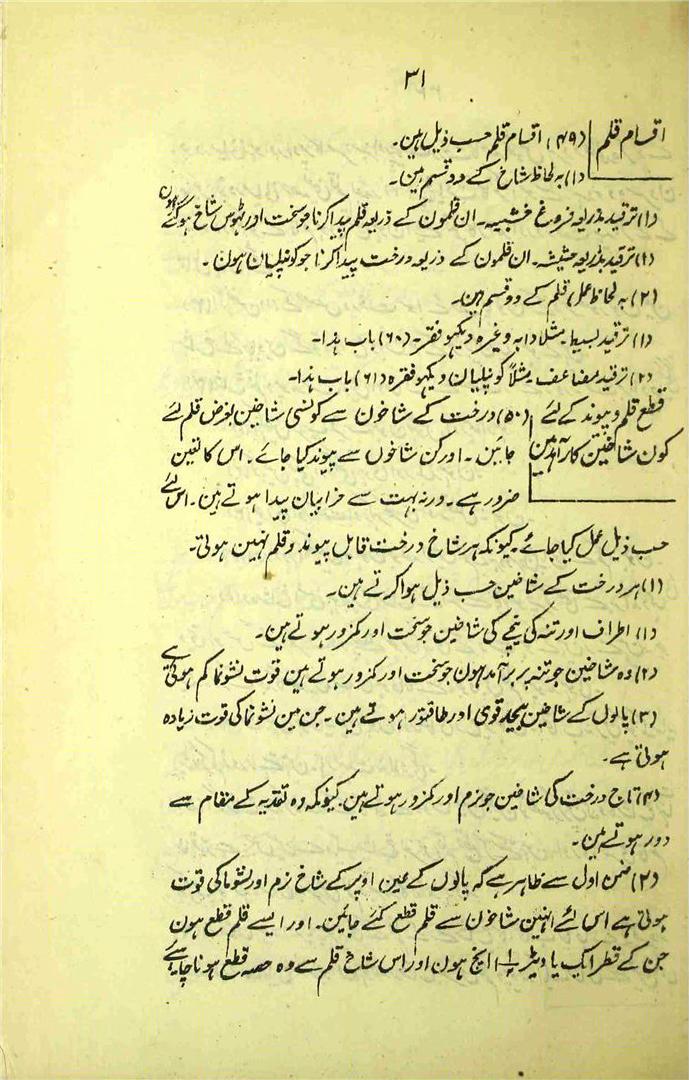 ۳۱
اقسام قلم (۴۹) اقسام قلم حسب ذیل ہین۔
(۱) بہ لحاظ شاخ کے دو قسم ہین۔
(۱) ترقید بذریعہ فروغ خشبیہ۔ ان قلمون کے ذریعہ قلم پیدا کرنا جو سخت اور ٹھوس شاخ ہو گئے ہون
(۲) ترقید بذریعہ حشیشہ۔ ان قلمون کے ذریعہ درخت پیدا کرنا جو کونپلیان ہون۔
(۲) بہ لحاظ عمل قلم کے دو قسم ہین۔
(۱) ترقید بسیط۔ مثلا دابہ وغیرہ دیکھو فقر۔ (۶۰) باب ہذا۔
(۲) ترقید مضاعف۔ مثلاً کونپلیان دیکھو فقرہ (۶۱) باب ہذا۔
قطع قلم و پیوند کے لئے (۵۰) درخت کے شاخون سے کونسی شاخین بغرض قلم لئے
کون شاخین کارآمد ہین جائین۔ اور کن شاخوں سے پیوند کیا جائے۔ اس کا تعین
ضرور ہے۔ ورنہ بہت سے خرابیان پیدا ہوتے ہین۔ اس لئے
حسب ذیل عمل کیا جائے۔ کیونکہ ہر شاخ درخت قابل پیوند و قلم نہین ہوتی۔
(۱) ہر درخت کے شاخین حسب ذیل ہوا کرتے ہین۔
(۱) اطراف اور تنہ کی نیچے کی شاخین جو سخت اور کمزور ہوتے ہین۔
(۲) وہ شاخین جو تنہ پر برآمد ہون جو سخت اور کمزور ہوتے ہین قوت نشونما کم ہوتی ہے
(۳) پالوں کے شاخین بیحد قوی اور طاقتور ہوتے ہین۔ جن مین نشونما کی قوت زیادہ
ہوتی ہے۔
(۴) تاج درخت کی شاخین جو نرم اور کمزور ہوتے ہین۔ کیونکہ وہ تغدیہ کے مقام سے
دور ہوتے ہین۔
(۲) ضمن اول سے ظاہر ہے کہ پالوں کے عین اوپر کے شاخ نرم اور نشونما کی قوت
ہوتی ہے اس لئے انہین شاخون سے قلم قطع کئے جائین۔ اور ایسے قلم قطع ہون
جن کے قطر ایک یا دیڑہ ۱½ انچ ہون اور اس شاخ قلم سے وہ حصہ قطع ہونا چاہیئے